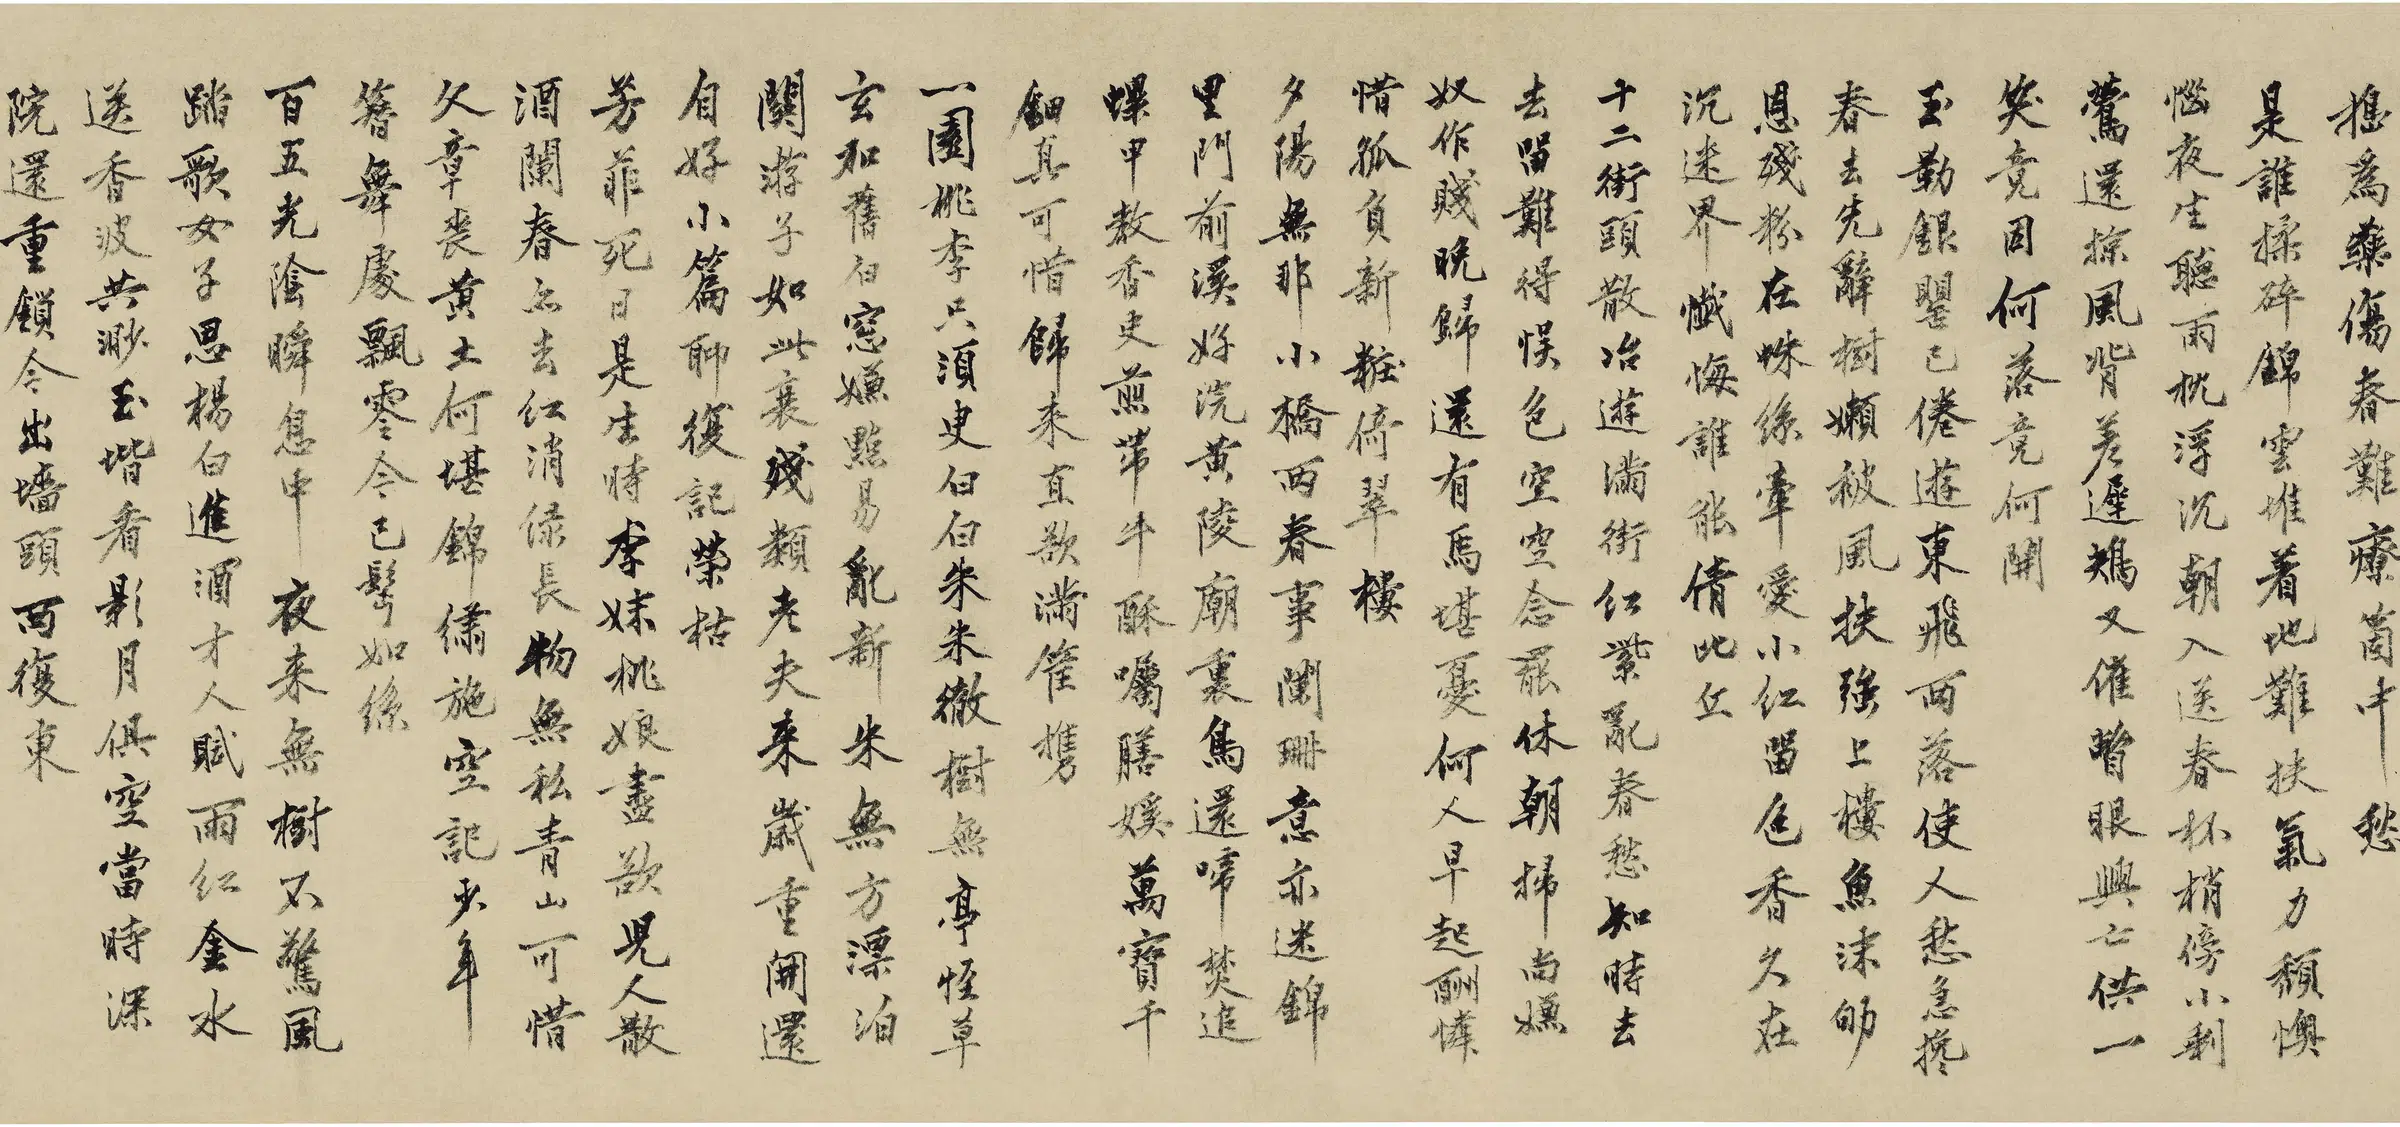 搗為藥傷春難療箇中愁
是誰揉碎錦雲堆着地難扶氣力頹懊
惱夜生聽雨枕浮沉朝入送春杯梢傍小剩
鶯還掠風背差遲鴂又催瞥眼興亡供一
笑竟因何落竟何開
玉勒銀罌已倦遊東飛西落使人愁急攙
春去先辭樹嬾被風扶強上樓魚沫劬
恩殘粉在蛛絲牽愛小紅留色香久在
沉迷界懺悔誰能倩此丘
十二街頭散冶遊滿街紅紫亂春愁知時去
去留難得悞色空空念罷休朝掃尚嫌
奴作賤晚歸還有馬堪憂何人早起酬憐
惜孤負新粧倚翠樓
夕陽無那小橋西春事闌珊意亦迷錦
里門前溪好浣黃陵廟裏鳥還啼焚追
螺甲教香史煎帶牛酥囑膳媛萬寶千
鈿真可惜歸來直欲滿筐攜
一園桃李只須臾白白朱朱徹樹無亭怪草
玄加舊白窓嫌點易亂新朱無方漂泊
關游子如此衰殘類老夫來歲重開還
自好小篇聊復記榮枯
芳菲死日是生時李妹桃娘盡欲兒人散
酒闌春亦去紅消綠長物無私青山可惜
文章喪黃土何堪錦繡施空記少年
簪舞處飄零今已鬢如絲
百五光陰瞬息中夜來無樹不驚風
踏歌女子思楊白進酒才人賦雨紅金水
送香波共渺玉堦看影月俱空當時深
院還重鎖今出墻頭西復東